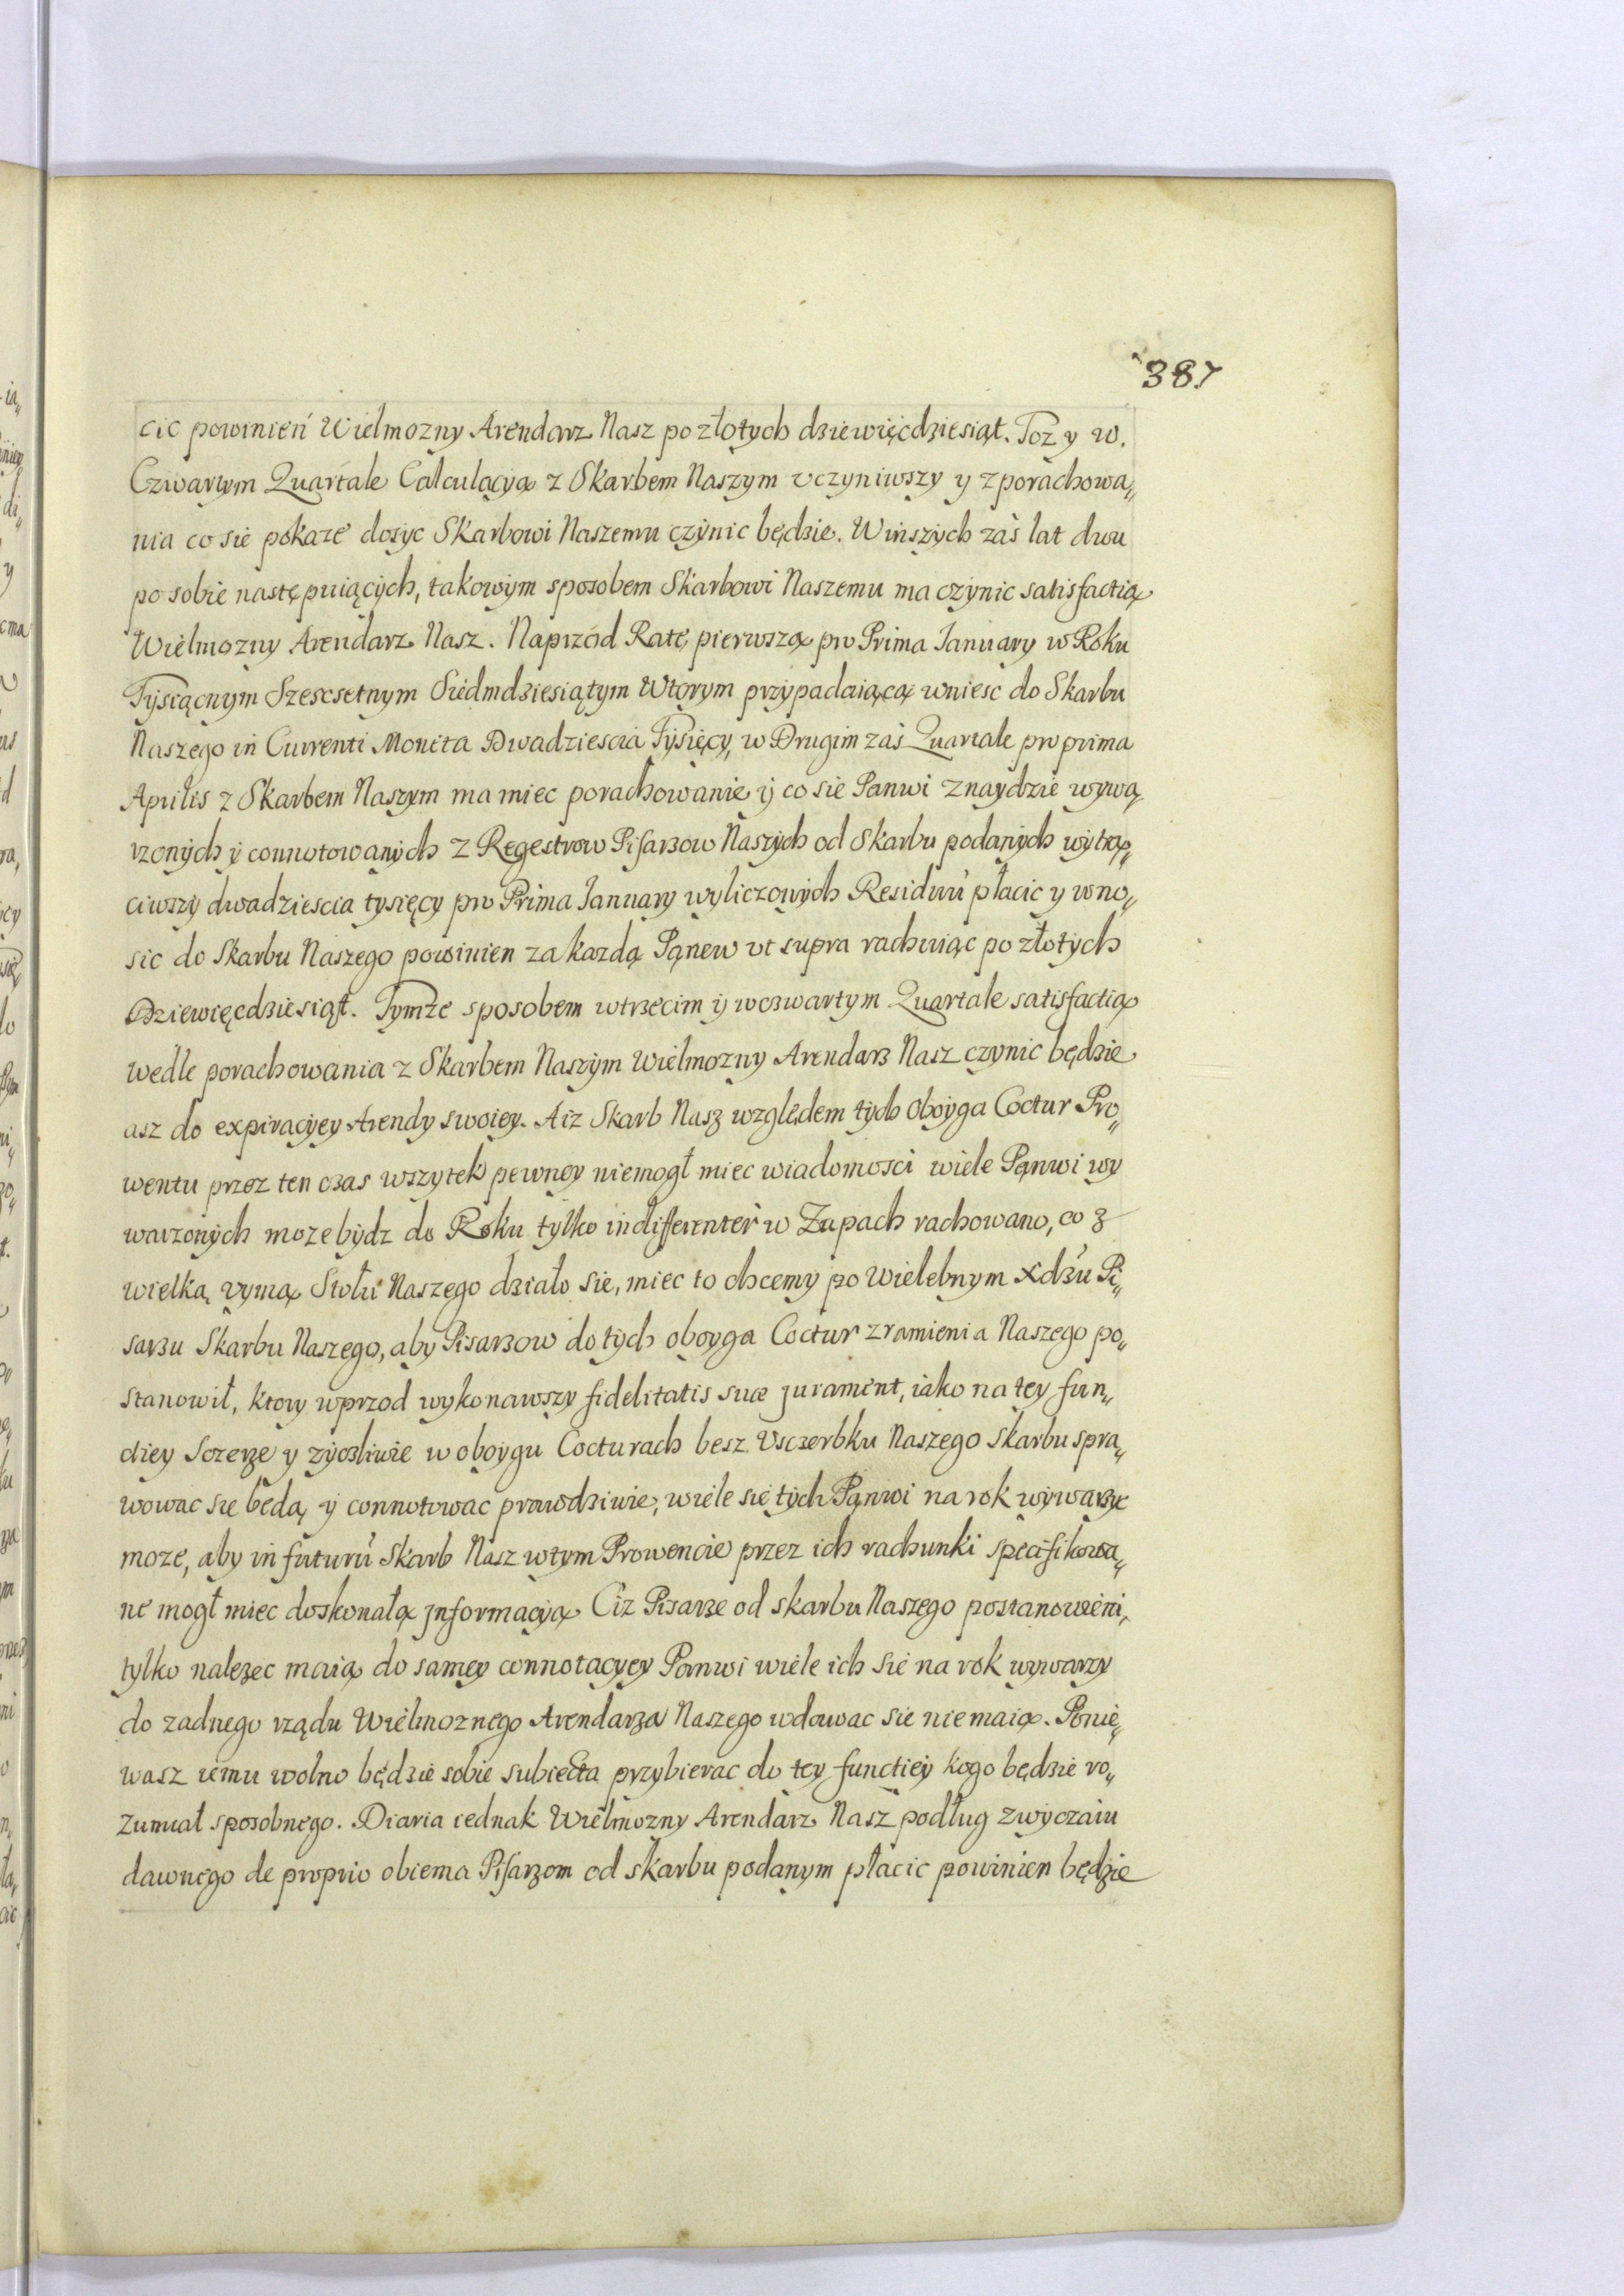 387
cic powinień Wielmozny Arendarz Nasz po złotych dziewięćdziesiąt. Toz y w.
Czwartym Quartale Calculacyą z Skarbem Naszym vczyniwszy y z porachowa„
nia co sie pokaze dosyc Skarbowi Naszemu czynic będzie. W inszych zaś lat dwu
po sobie następuiących, takowym sposobem Skarbowi Naszemu ma czynic satisfactią
Wielmozny Arendarz Nasz. Naprzod Ratę pierwszą pro Prima January w Roku
Tysiącnym Szescsetnym Siedmdziesiątym Wtorym przypadaiącą wniesc do Skarbu
Naszego in Currenti Moneta Dwadziescia Tysięcy, w Drugim zaś Quartale pro prima
Aprilis z Skarbem Naszym ma miec porachowanie y co sie Panwi znaydzie wywa„
rzonych y connotowanych z Regestrow Pisarzow Naszych od Skarbu podanych wytrą„
ciwszy dwadziescia tysięcy pro Prima January wyliczonych Residuũ płacic y wno„
sic do Skarbu Naszego powinien za kazdą Panew vt supra rachuiąc po złotych
Dziewięcdziesiąt. Tymze sposobem w trzecim y w czwartym Quartale satisfactią
wedle porachowania z Skarbem Naszym Wielmozny Arendarz Nasz czynic będzie
asz do expiracyey Arendy swoiey. A iz Skarb Nasz względem tych oboyga Coctur Pro„
wentu przez ten czas wszytek pewney niemogł miec wiadomosci wiele Panwi wy
warzonych moze bydz do Roku tylko indifferenter w Zupach rachowano, co z
wielką vymą Stołu Naszego działo sie, miec to chcemy po Wielebnym Xdzu Pi„
sarzu Skarbu Naszego, aby Pisarzow do tych oboyga Coctur z ramienia Naszego po„
stanowił, ktory wprzod wykonawszy fidelitatis suæ jurament, iako na tey fun„
ctiey Sczerze y zyczliwie w oboygu Cocturach besz Vsczerbku Naszego Skarbu spra„
wowac sie będą y connotowac prawdziwie, wiele się tych Panwi na rok wywarzyc
moze, aby in futurũ Skarb Nasz w tym Prowencie przez ich rachunki specifikowa„
ne mogł miec doskonałą jnformacyą Ciz Pisarze od skarbu Naszego postanowieni,
tylko nalezec maią do samey connotacyey Panwi wiele ich sie na rok wywarzy
do zadnego rządu Wielmoznego Arendarza Naszego wdawac sie nie maią. Ponie„
wasz iemu wolno będzie sobie subiecta przybierac do tey functiey kogo będzie ro„
zumiał sposobnego. Diaria iednak Wielmozny Arendarz Nasz podług zwyczaiu
dawnego de proprio obiema Pisarzom od skarbu podanym płacic powinien będzie